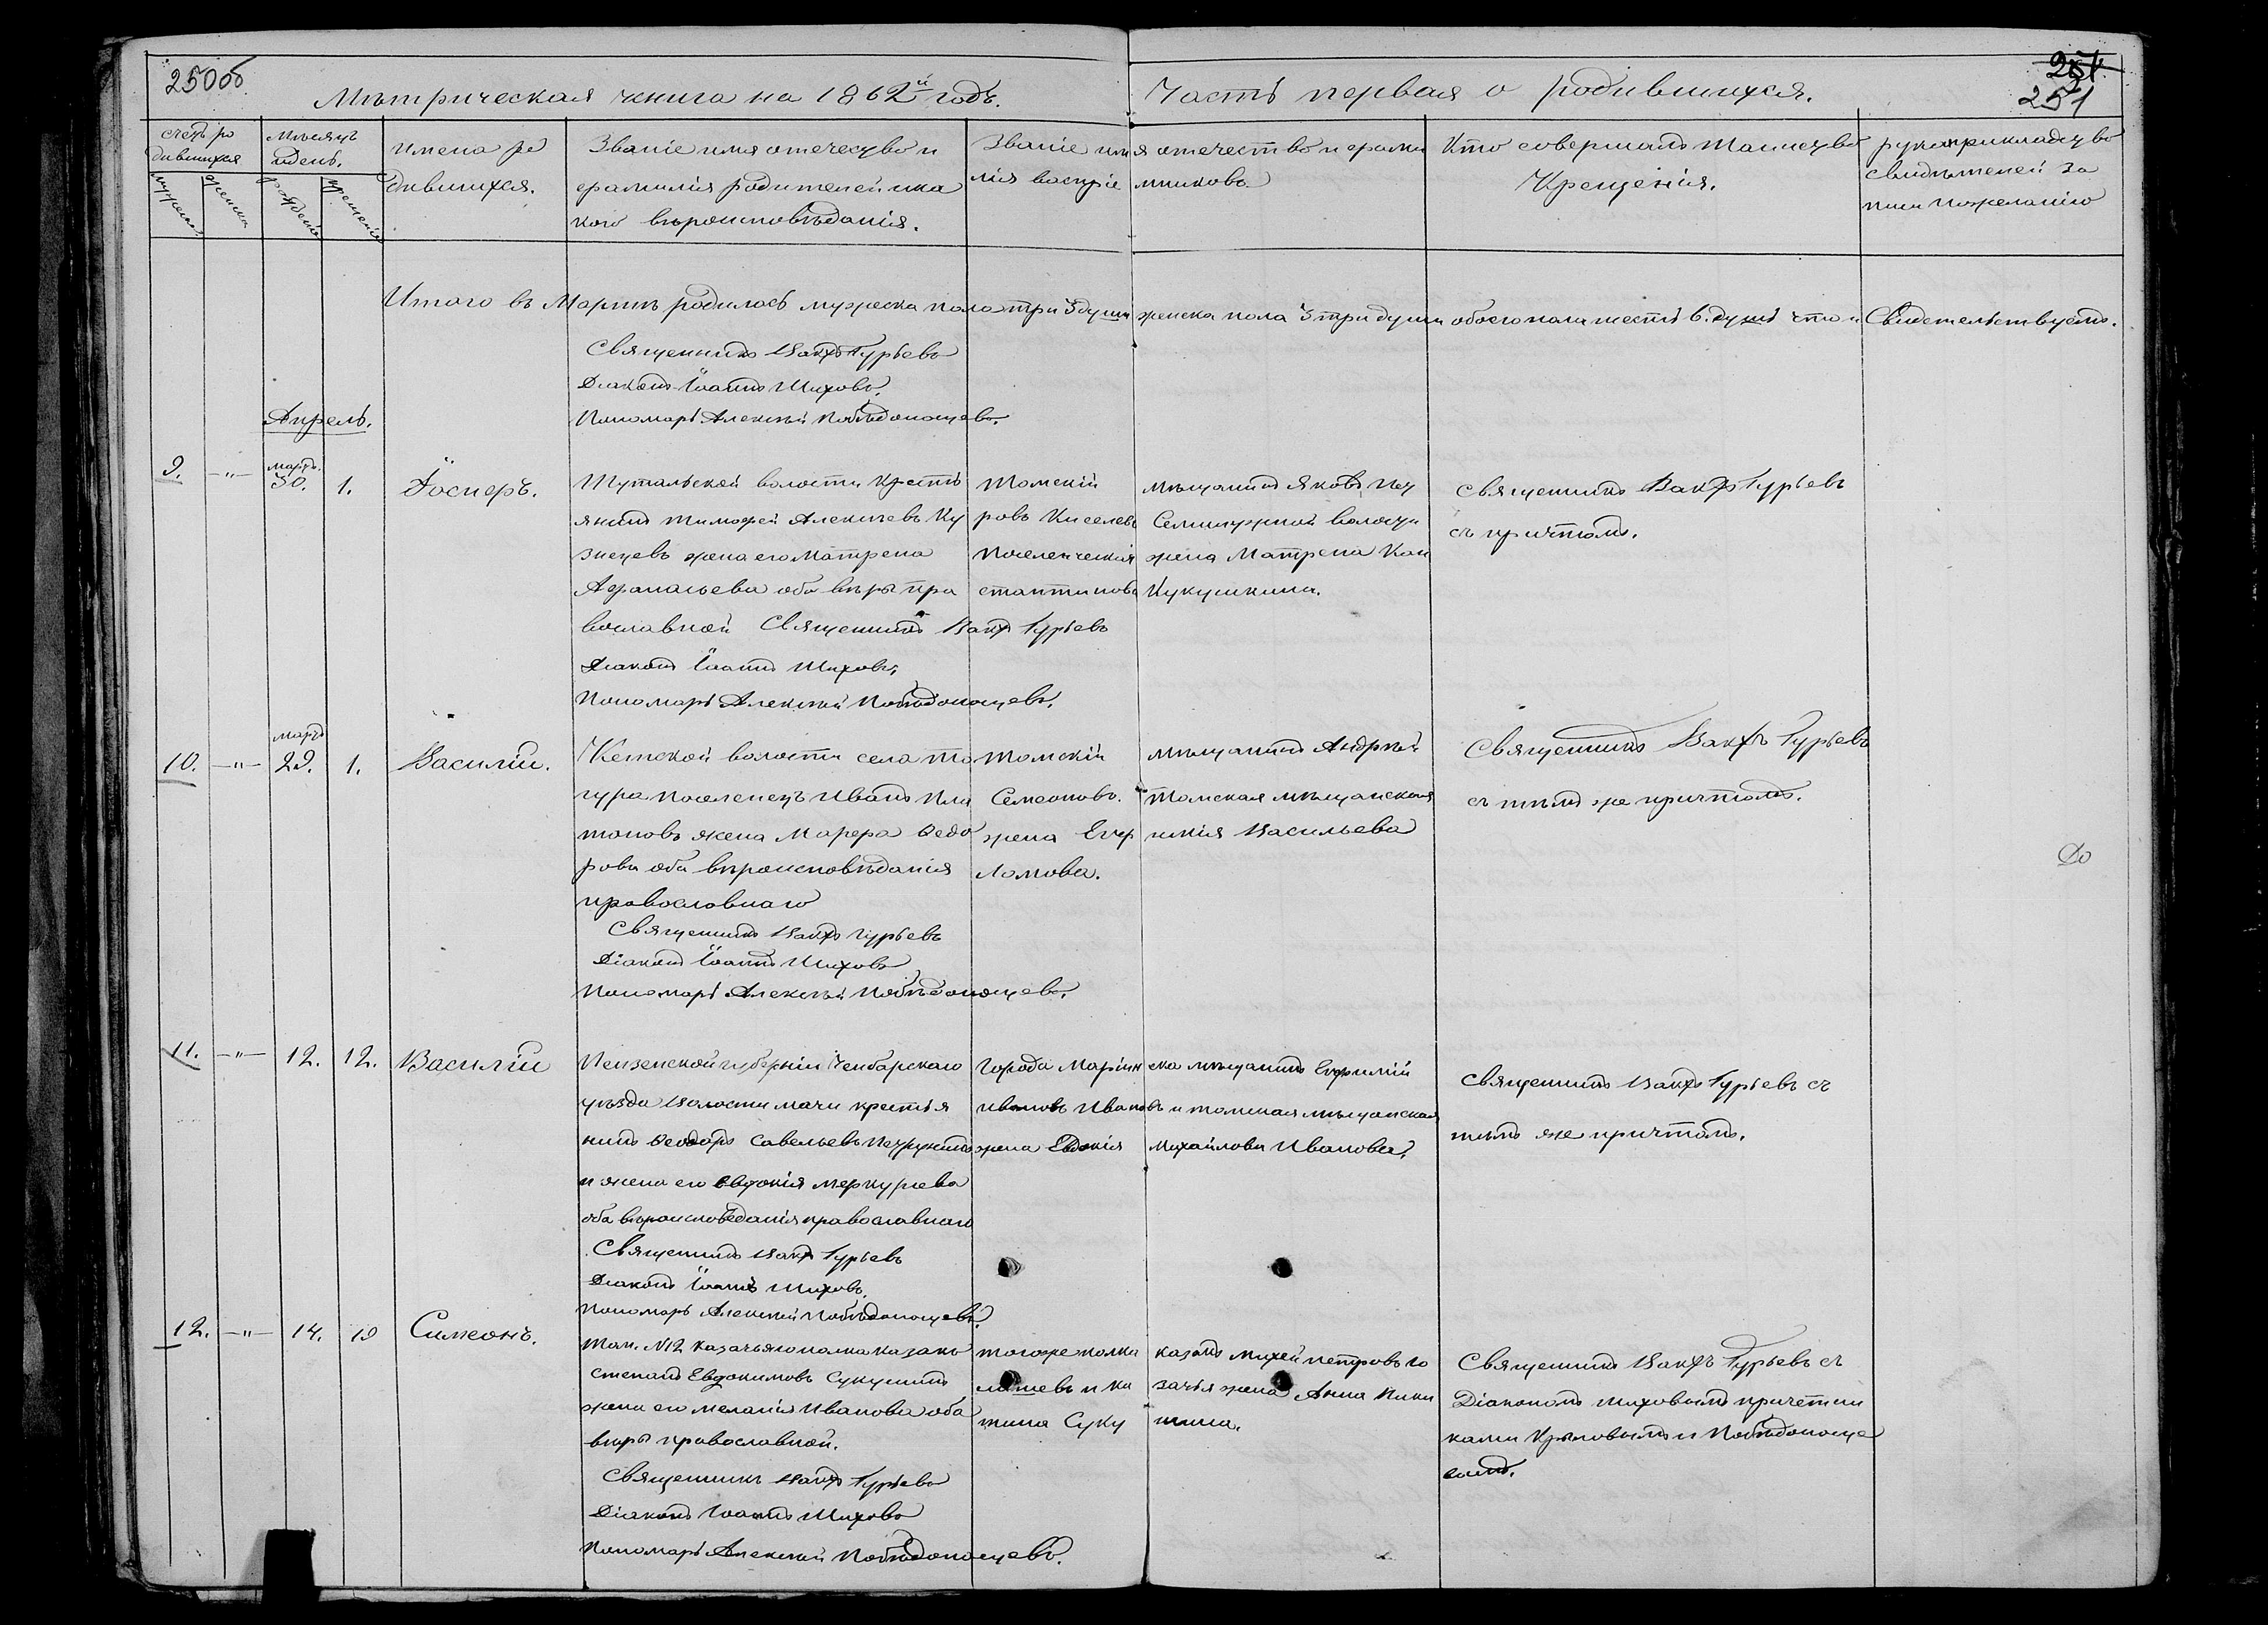 250об
251
251
Мѣтрическая книга на 1862й годъ. Часть первая о родившихся.
счетъ ро дившихся
мужеска женска
Мѣсяцъ и день.
рожденія крещенія
имена ро дившихся.
Званіе имя отечество и фамилія родителей и ка кого вѣроисповѣданія.
Званіе имя отечество и фами лія воспріе мниковъ.
Кто совершалъ Таинство Крещенія.
рукоприкладство свидѣтелей за писи по желанію
Итого въ Мартѣ родилось мужеска пола три 3 души женска пола 3 три души обоего пола шесть 6. душъ что и Свидетельствуемъ.
Священникъ Вакхъ Гурьевъ
Діаконъ Іоаннъ Шиховъ.
Пономарь Алексѣй Побѣдоносцевъ.
Апрель.
9. -"- Мартъ. 30. 1.
Іосифъ.
Шутальской волости кресть
янинъ Тимофей Алексѣевъ Ку
знецевъ жена его Матрена
Афанасьева оба вѣры пра
вославной Священникъ Вакхъ Гурьевъ
Діаконъ Іоаннъ Шиховъ.
Пономарь Алексѣй Побѣдоносцевъ.
Томскій мѣщанинъ Яковъ Пет
ровъ Киселевъ Семилужной волости
поселенческая жена Матрена Кон
стантинова Кукушкина.
Священникъ Вакхъ Гурьевъ
съ причтомъ.
10. -"- мартъ 29. 1.
Василій.
Кетской волости села То
гура поселенецъ Иванъ Пла
тоновъ жена Марфа Ѳедо
рова оба вѣроисповѣданія
православнаго
Священникъ Вакхъ Гурьевъ
Діаконъ Іоаннъ Шиховъ
Пономарь Алексѣй Побѣдоносцевъ.
Томскій мѣщанинъ Андрѣй
Семеоновъ. Томская мѣщанская
жена Евф имія Васильева
Ломова.
Священникъ Вакхъ Гурьевъ
съ тѣмъ же причтомъ.
До
11. -"- 12. 12.
Василій
Пензенской губерніи Чембарскаго
уѣзда Волости мачи крестья
нинъ Ѳеодоръ Савельевъ
и жена его Евдокія Меркурьева
оба вѣроисповѣданія православнаго
Священникъ Вакхъ Гурьевъ
Діаконъ Іоаннъ Шиховъ.
Пономарь Алексѣй Побѣдоносцевъ.
Города Маріин ска мѣщанинъ Евфимій
Ивановъ Ивановъ и томская мѣщанская
жена Евдокія Михайлова Иванова.
Священникъ Вакхъ Гурьевъ съ
тѣмъ же причтомъ.
12. -"- 14. 19
Симеонъ.
Том. №12 Казачьяго полка казакъ
Степанъ Евдокимовъ Сукушинъ
жена его Меланія Иванова оба
вѣры православной.
Священникъ Вакхъ Гурьевъ
Діаконъ Іоаннъ Шиховъ
Пономарь Алексѣй Побѣдоносцевъ.
тогоже полка казакъ Михей Петровъ Го
лышевъ и ка зачья жена Анна Ники
тина Суку шина.
Священникъ Вакхъ Гурьевъ съ
Діакономъ Шиховымъ причетни
ками Крыловымъ и Побѣдоносце
вымъ.